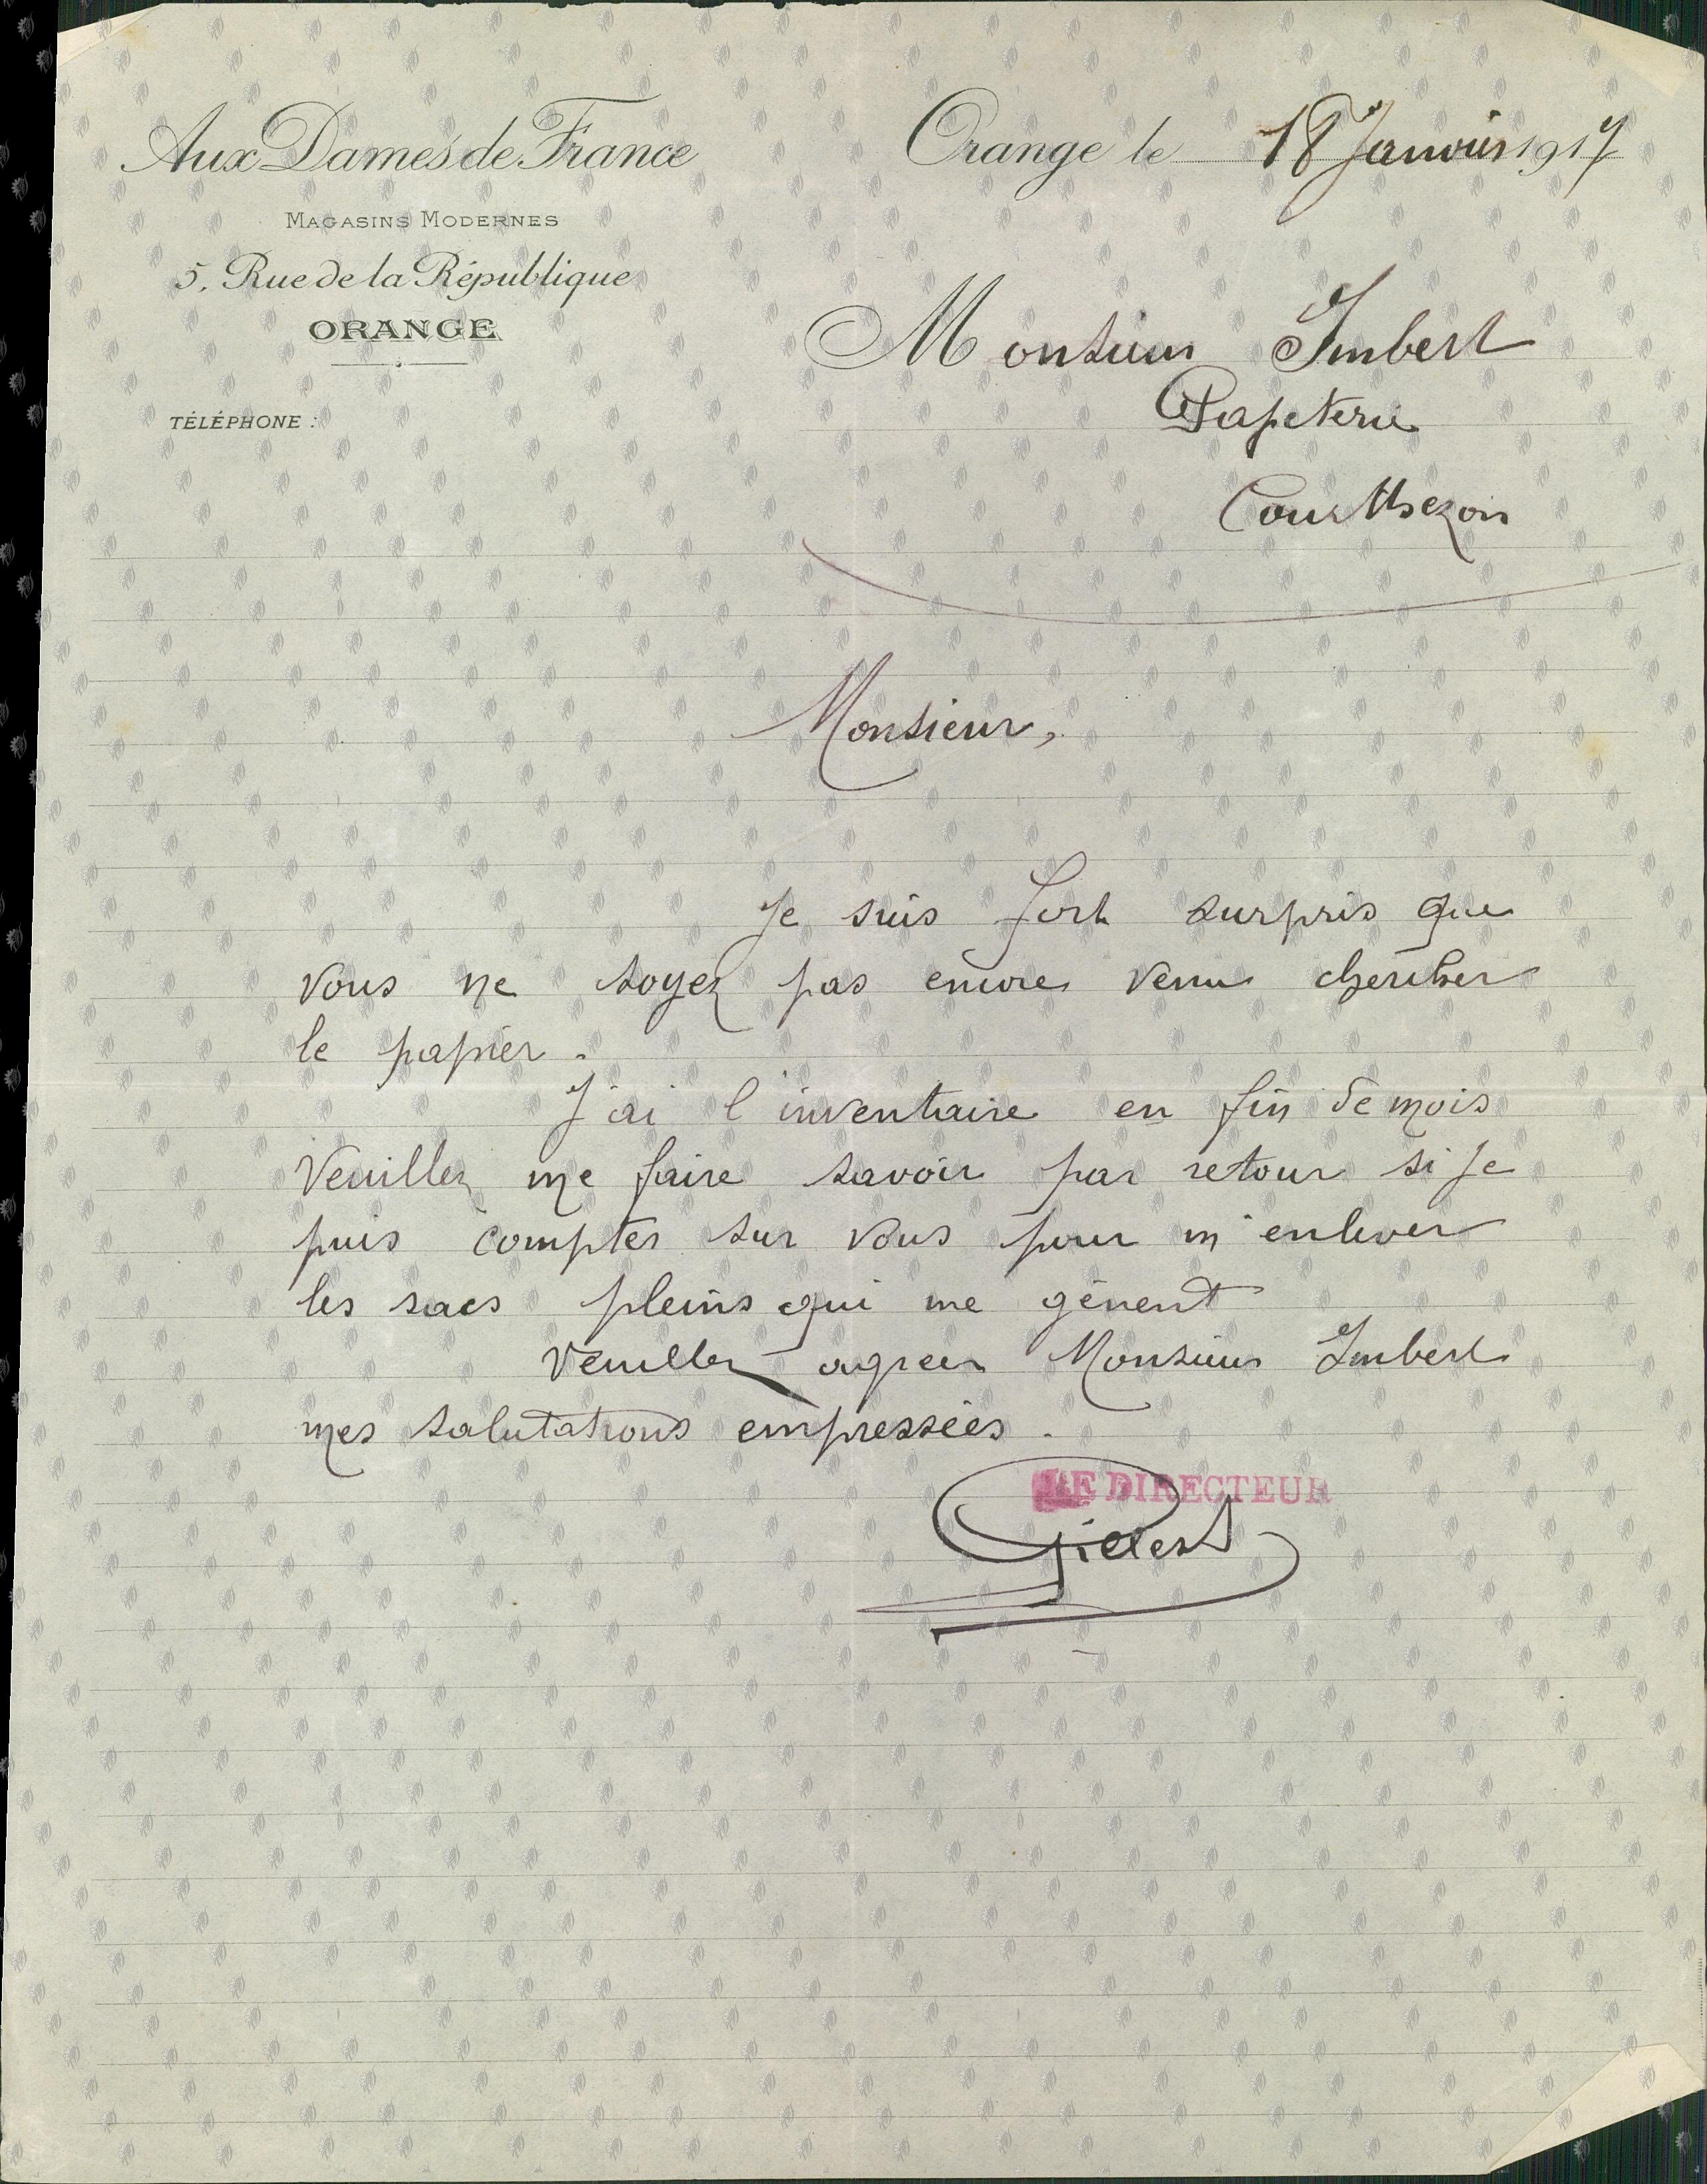 Aux Dames de France
MAGASINS MODERNES
5, Rue de la République
ORANGE
TÉLÉPHONE :
Orange le 18 Janvier 1917
Monsieur Imbert
Papeterie
Courthezon
Monsieur,
Je suis fort surpris que
vous ne soyez pas encore venu chercher
le papier.
J'ai l'inventaire en fin de mois
Veuillez me faire savoir par retour si je
puis compter sur vous pour m'enlever
les sacs pleins qui me gènent
Veuillez agreer Monsieur Imbert
mes salutations empressées.
LE DIRECTEUR